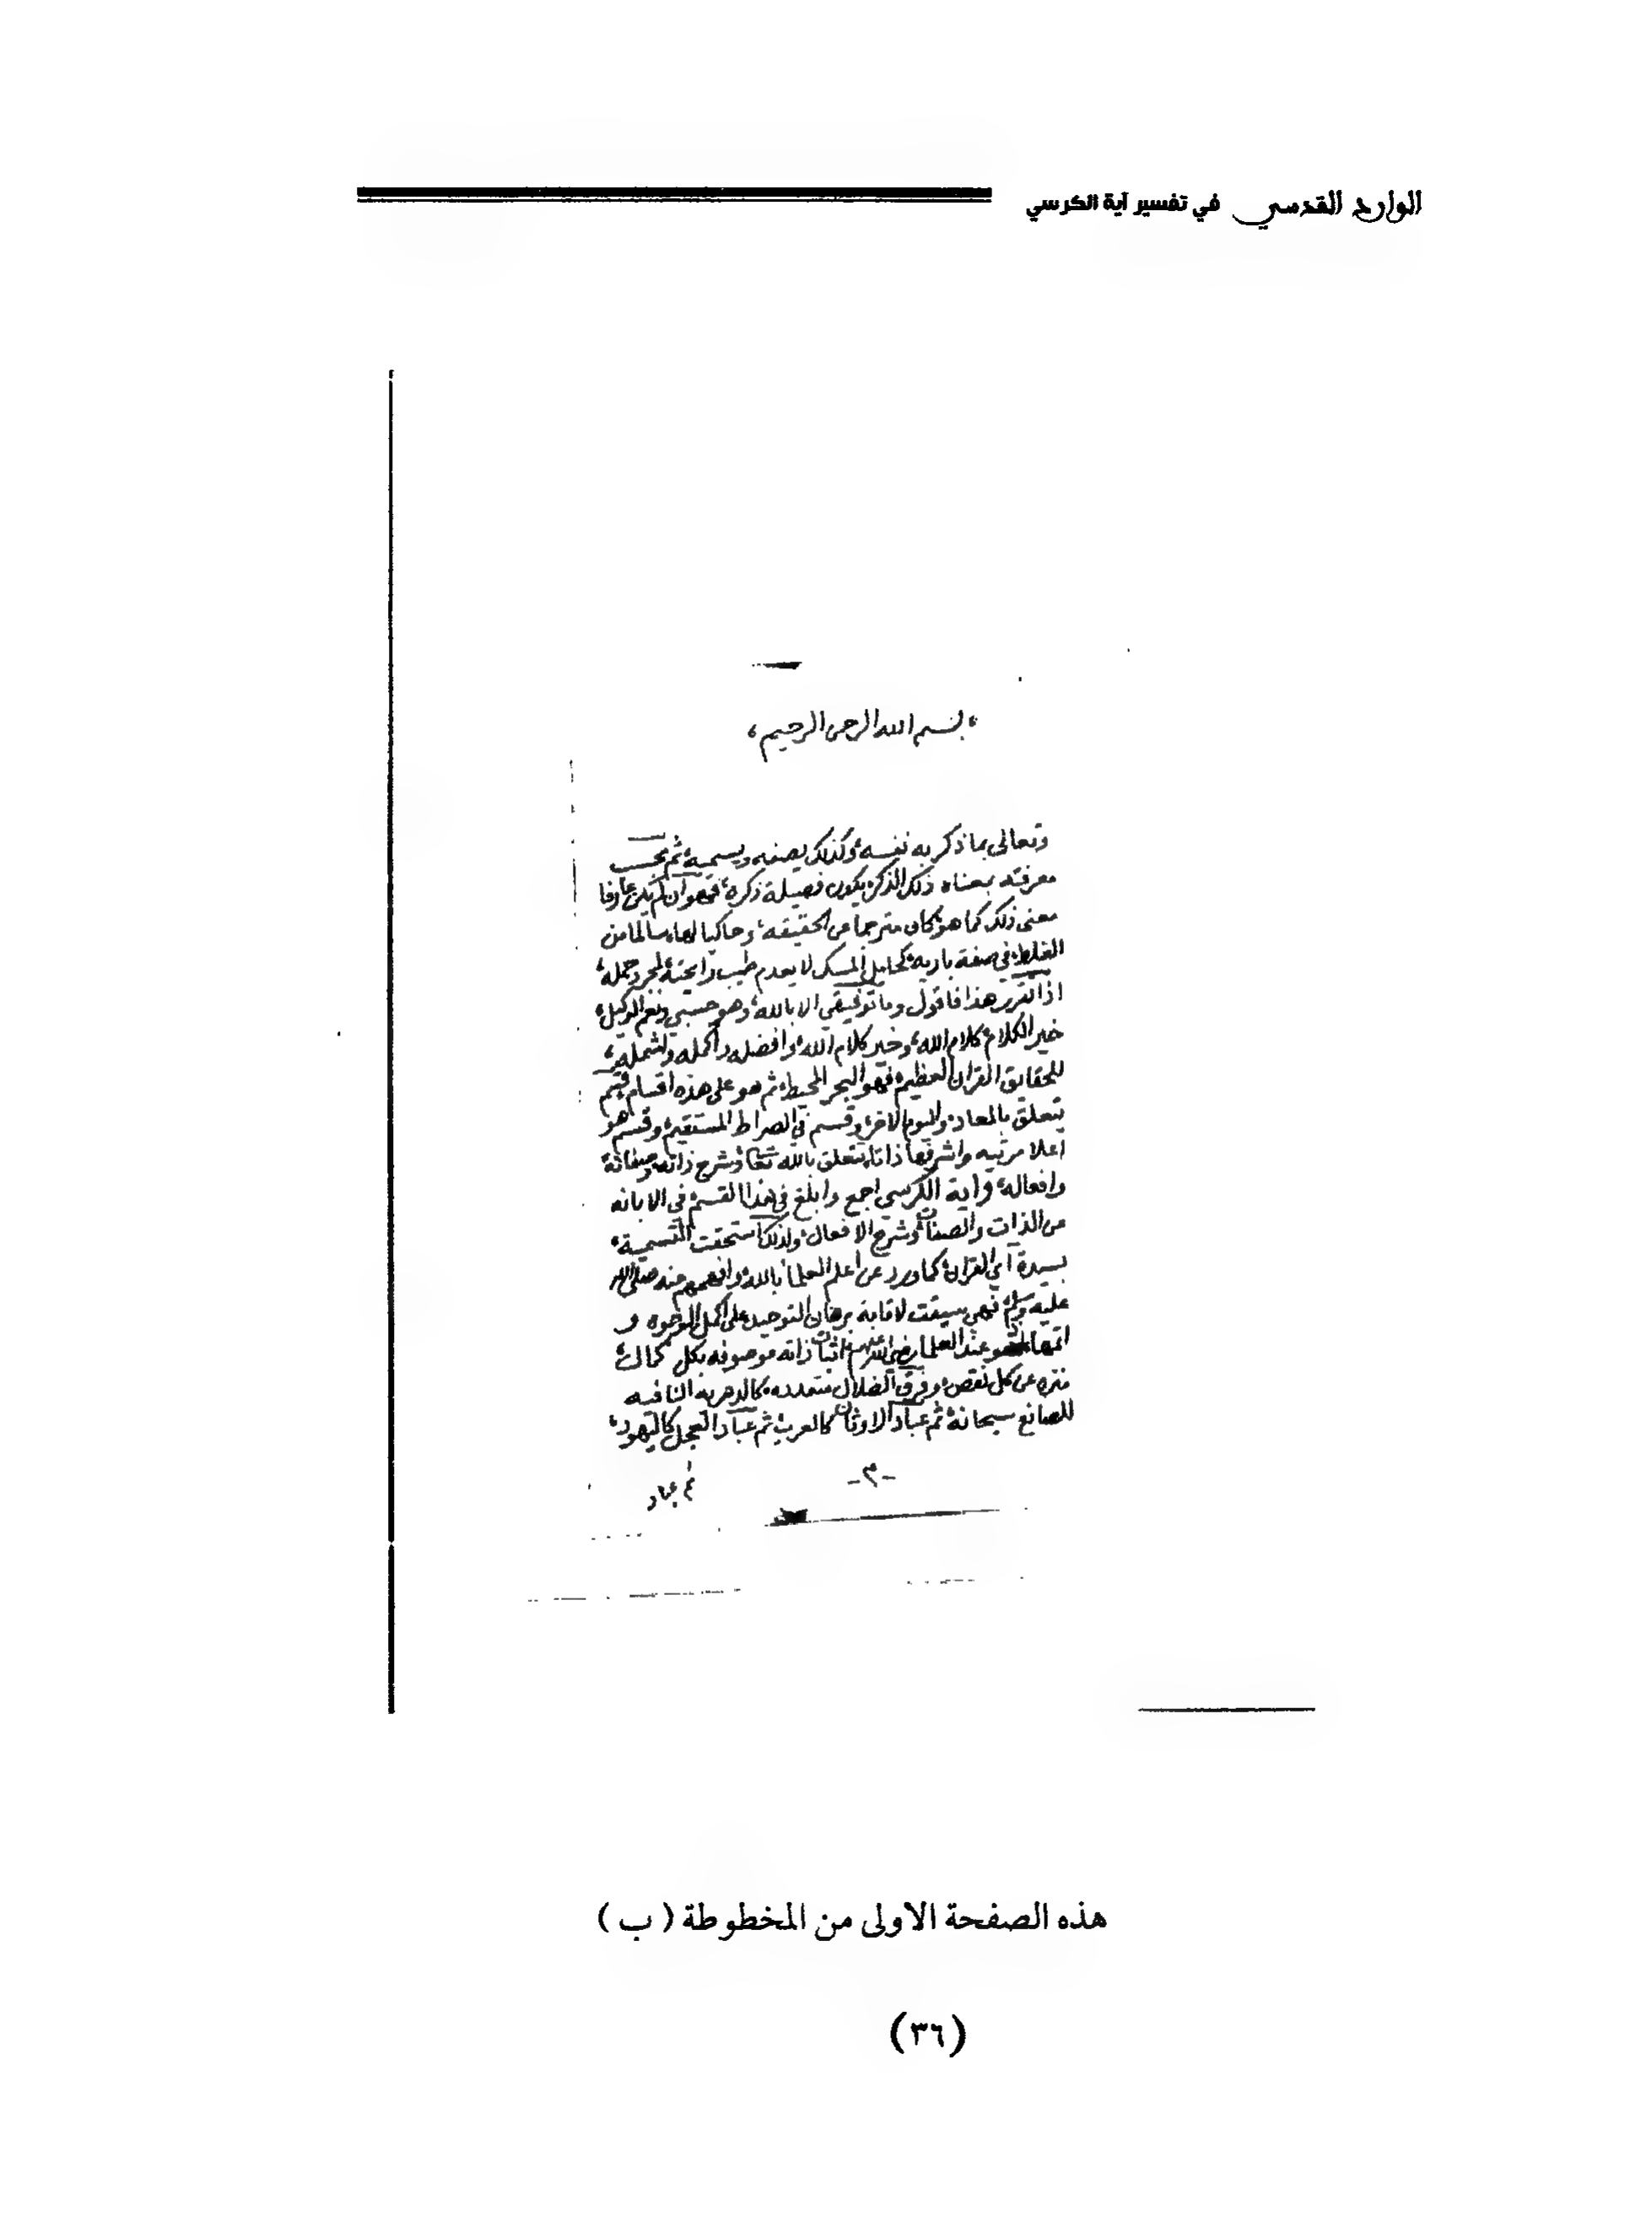 الوارد القدسي في تفسير آية الكرسي
بسم الله الرحمن الرحيم
وتعالى بما ذكر به نفسه وكذلك يصفه ويسميه ثم بحسب
معرفته بمعناه ذلك الذكر يكون فضيلة ذكره فهو ان لم يكن عارفا
معنى ذلك كما هو كان مترجما عن الحقيقه وحاكيا لها سالما من
الغلط في صفة باريه كحامل المسك لا يعدم طيب رائحته لمجرد حمله
اذا تقرر هذا فاقول وما توفيقي الا بالله وهو حسبي ونعم الوكيل
خير الكلام كلام الله وخير كلام الله وافضله واكمله واشمله
للحقايق القران العظيم فهو البحر المحيط ثم هو على هذه اقسام قسم
يتعلق بالمعاد واليوم الاخر وقسم في الصراط المستقيم وقسم هو
اعلا مرتبه واشرفها ذاتا يتعلق بالله تعا وشرح ذاته وصفاته
وافعاله واية الكرسي اجمع وابلغ في هذا القسم في الابانه
عن الذات والصفات وشرح الافعال ولذلك استحقت التسمية
بسيدة آي القران كما ورد عن اعلم العلما بالله وافهمهم عنه صلى الله
عليه وسلم فهي سيقت لاقامة برهان التوحيد على اكمل الوجوه و
اتمها عند العلما رضي الله عنهم اثبات ذاته موصوفه بكل كمال
منزه عن كل نقص وفرق الضلال متعدده كالدهريه النافيه
للصانع سبحانه ثم عباد الاوثان كالعرب ثم عباد العجل كاليهود
ثم عباد
-٣-
هذه الصفحة الاولى من المخطوطة ( ب )
(٣٦)